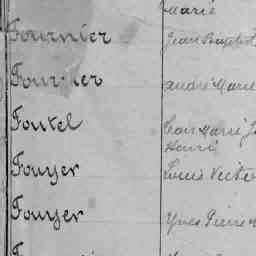 Marie
Fournier Jean Baptist
Fournier André Marie
Foutel Jean Marie J
Henri
Fouyer Louis Victo
Fouyer Yves Pierre